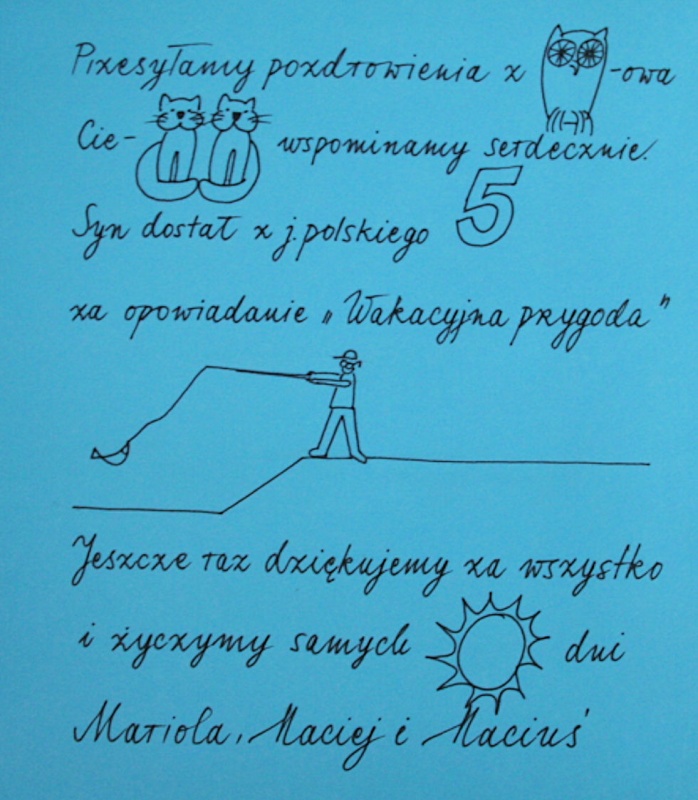 Przesyłamy pozdrowienia z -owa
Cie- wspominamy serdecznie.
Syn dostał z j. polskiego 5
za opowiadanie „Wakacyjna przygoda”
Jeszcze raz dziękujemy za wszystko
i życzymy samych dni
Mariola, Maciej i Maciuś